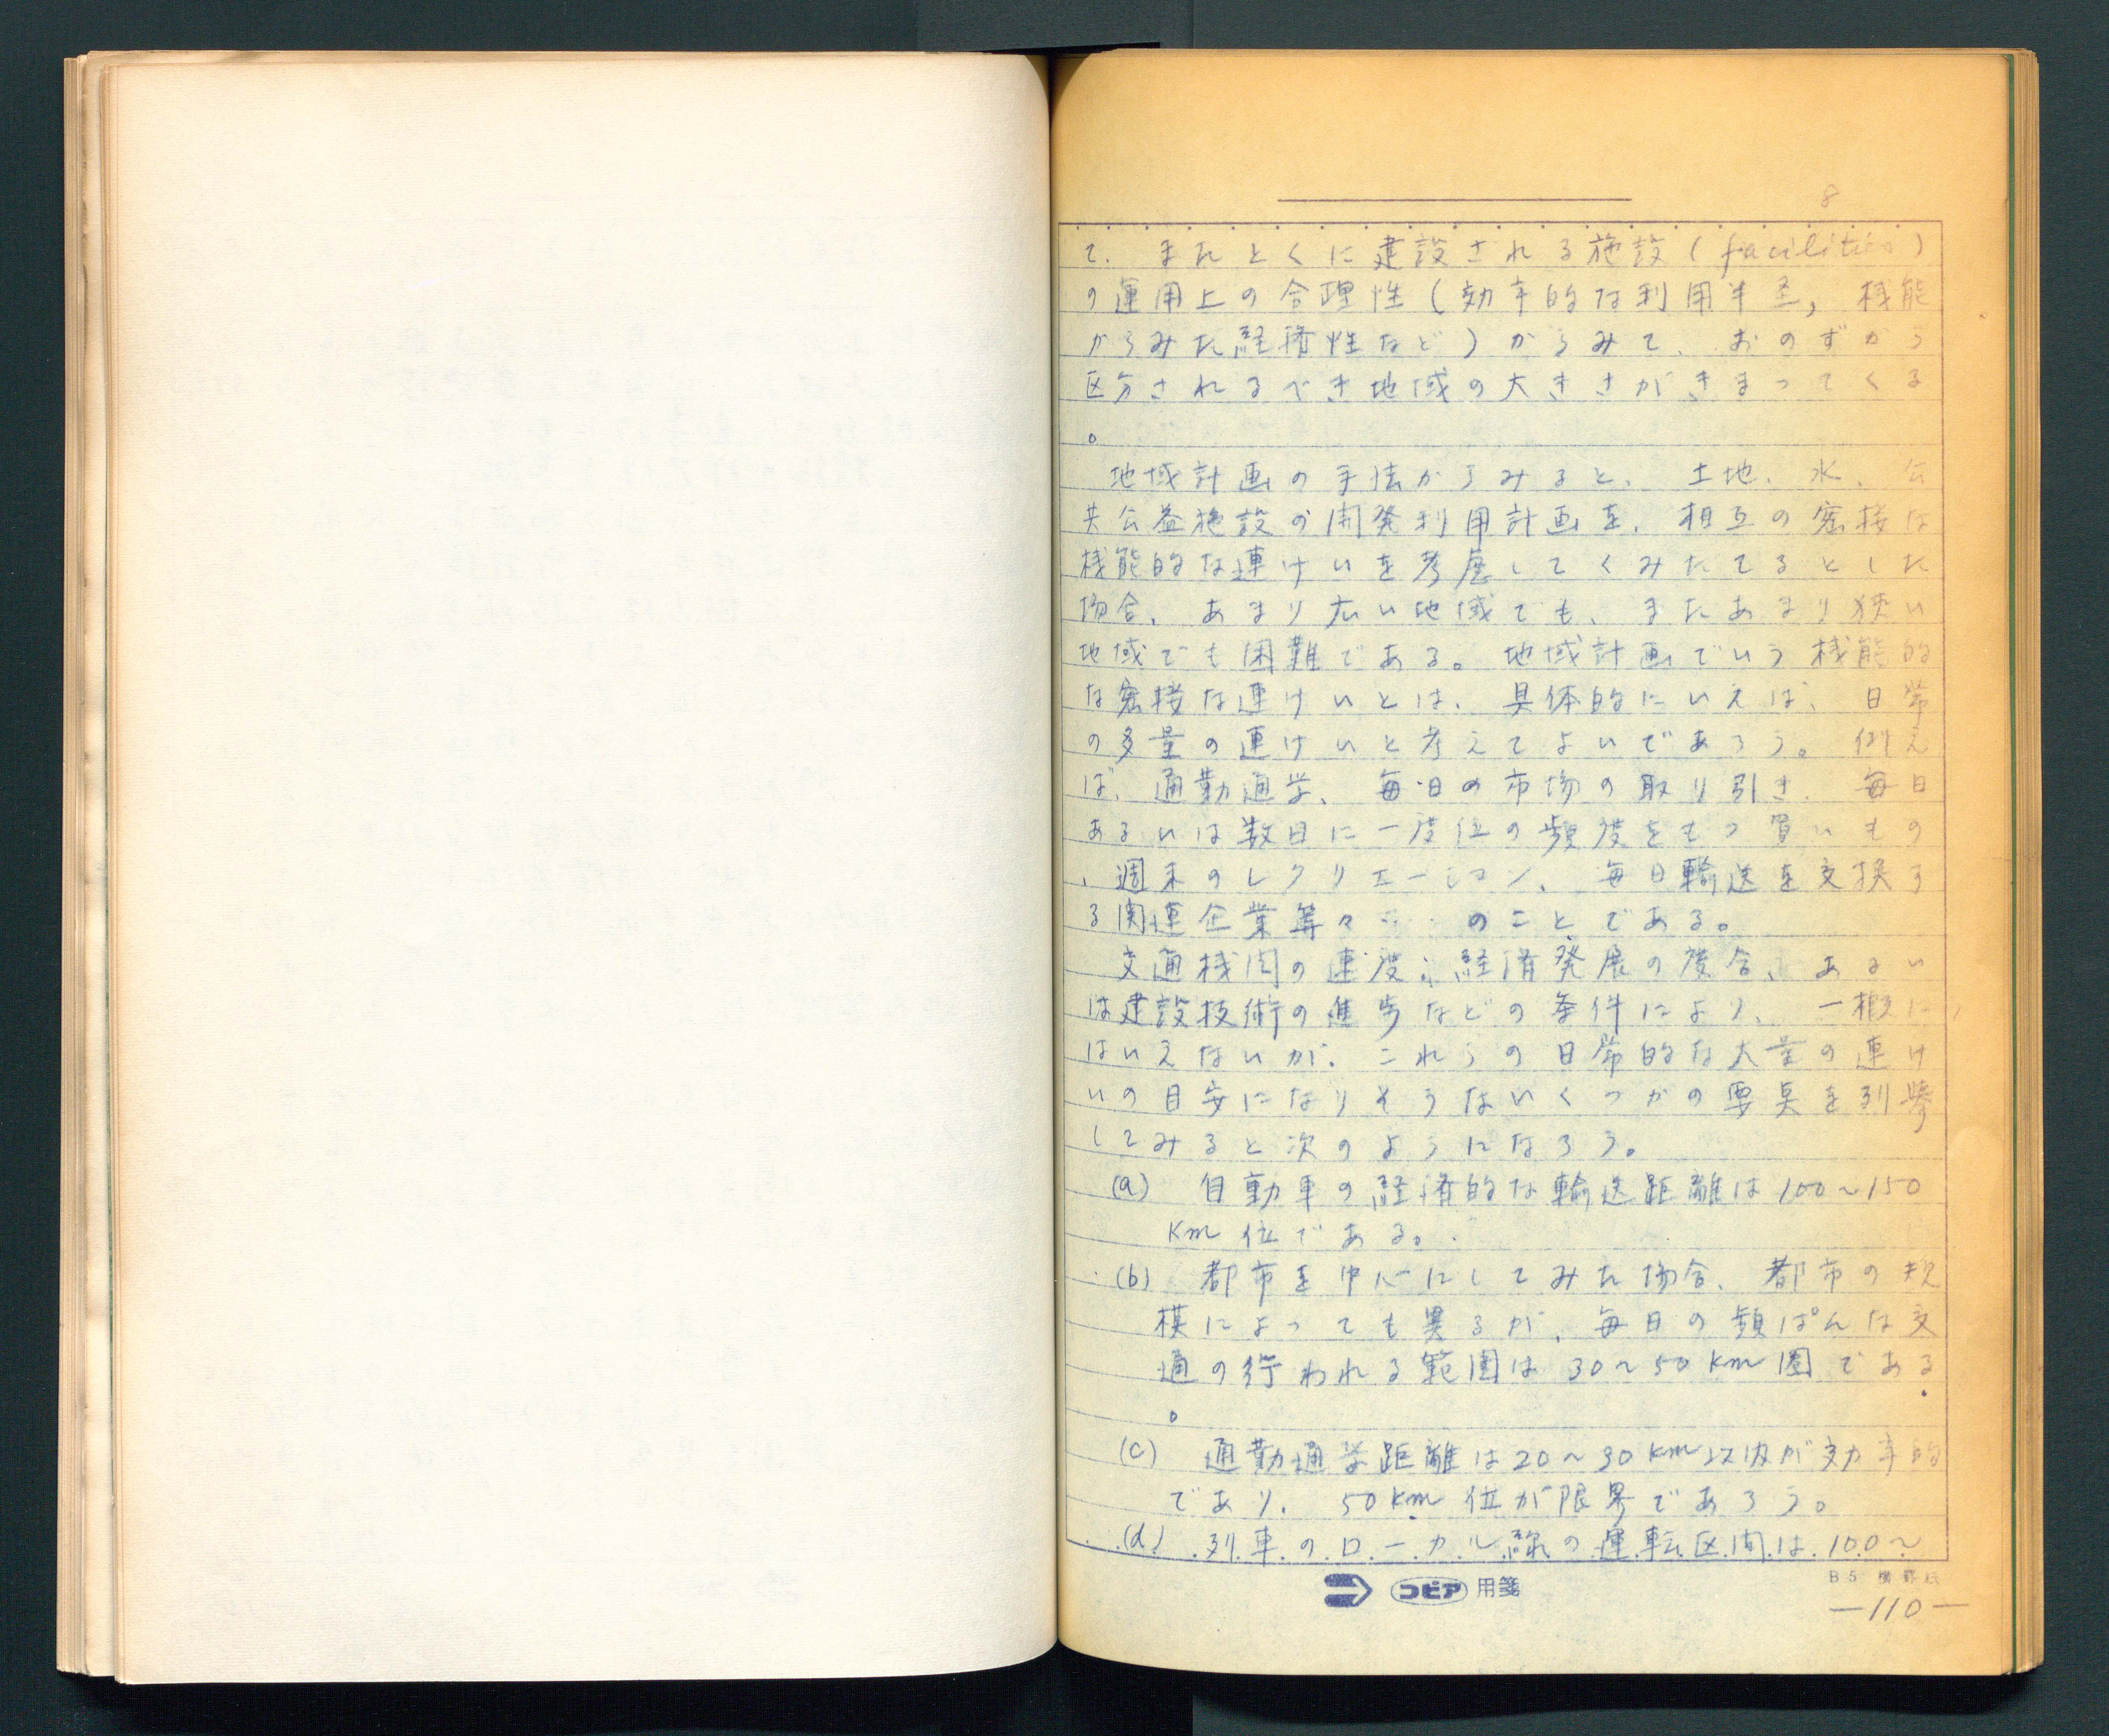 8
て、またとくに建設される施設(facilities)
の運用上の合理性(効率的な利用半径,機能
からみた経済性など)からみて、おのずから
区分されるべき地域の大きさがきまってくる
。
地域計画の手法からみると、土地、水、公
共公益施設の開発利用計画を、相互の密接な
機能的な連けいを考慮してくみたてるとした
場合、あまり広い地域でも、またあまり狭い
地域でも困難である。地域計画でいう機能的
な密接な連けいとは、具体的にいえば、日常
の多量の連けいと考えてよいであろう。例え
ば、通勤通学、毎日の市場の取り引き、毎日
あるいは数日に一度位の頻度をもつ買いもの
、週末のレクリエーション、毎日輸送を交換す
る関連企業等々・・・のことである。
交通機関の速度、経済発展の度合、あるい
は建設技術の進歩などの条件により、一概に
はいえないが、これらの日常的な大量の連け
いの目安になりそうないくつかの要点を列挙
してみると次のようになろう。
(a) 自動車の経済的な輸送距離は100~150
Km位である。
(b) 都市を中心にしてみた場合、都市の規
模によっても異るが、毎日の頻ぱんな交
通の行われる範囲は30~50Km圏である
。
(c) 通勤通学距離は20~30Km以内が効率的
であり、50Km位が限界であろう。
(d) 列車のローカル線の運転区間は100~
コピア 用箋
B5 横罫紙
—110—